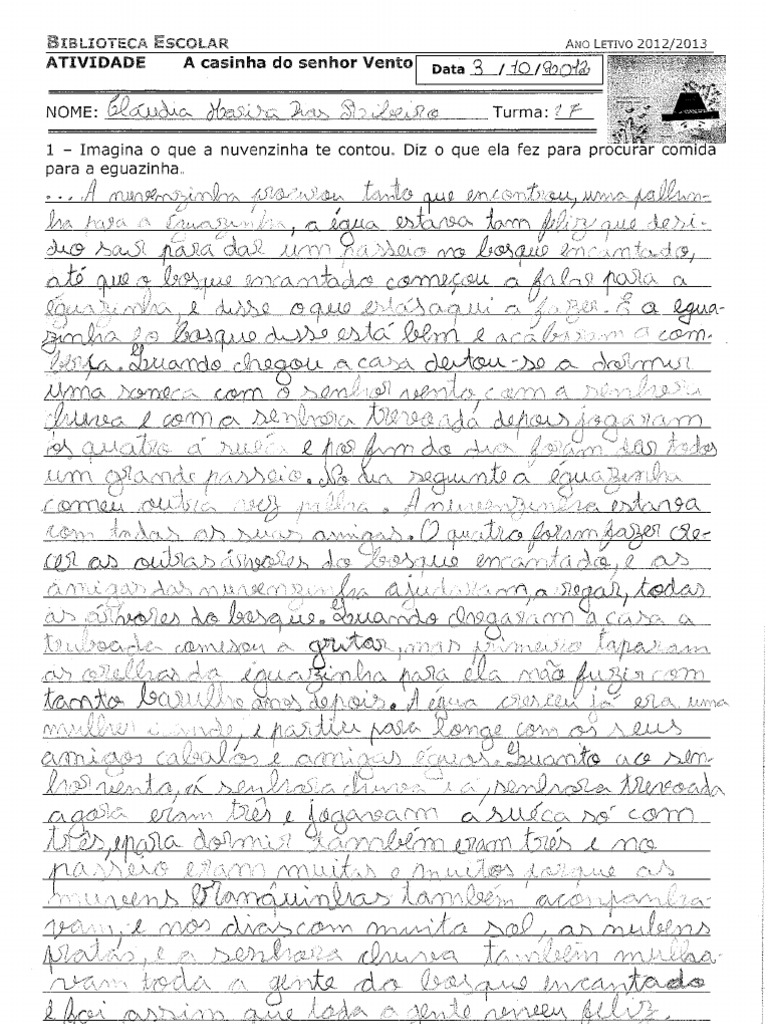 BIBLIOTECA ESCOLAR ANO LETIVO 2012/2013
ATIVIDADE A casinha do senhor Vento Data 3 / 10 / 2012
NOME: Cláudia Marisa Dias Ribeiro Turma: 17
1 – Imagina o que a nuvenzinha te contou. Diz o que ela fez para procurar comida
para a eguazinha.
... A nuvenzinha procurou tanto que encontrou, uma palhun-
ha para a éguazinha, a égua estava tam feliz que desi-
dio sair para dar um passeio no bosque encantado,
até que o bosque encantado começou a falar para a
éguazinha, e disse oque estás aqui a fazer. E a égua-
zinha e o bosque disse está bem e acabaram a com-
berça. Quando chegou a casa deitou-se a dormir
uma soneca com o senhor vento, com a senhora
chuva e com a senhora trevoada depois jogaram
os quatro á suéca e por fim do dia foram dar todos
um grande passeio. No dia seguinte a éguazinha
comeu outra vez palha. A nuvenzinha estava
com todas as suas amigas. O quatro foram fazer cre-
cer as outras árvores do bosque encantado, e as
amigas das nuvenzinha ajudaram, a regar, todas
as árvores do bosque. Quando chegaram a casa a
truboada comesou a gritar, mas primeiro taparam
as orelhas da éguazinha para ela não fuzir com
tamto barulho anos depois. A égua cresceu já era uma
mulher grande, e partiu para longe com os seus
amigos cabalos e amigas éguas. Quanto ao sen-
hor vento, á senhora chuva e á, senhora trevoada
agora eram três e jogavam a suéca só com
três, e para dormir também eram três e no
passeio eram muitas e muitos porque as
nuvens branquinhas também aconpanha-
vam, e nos dias com muito sol, as nubens
pratas, e a senhora chuva também mulha-
vam toda a gente do bosque encantado
e foi assim que toda a gente viveu feliz.